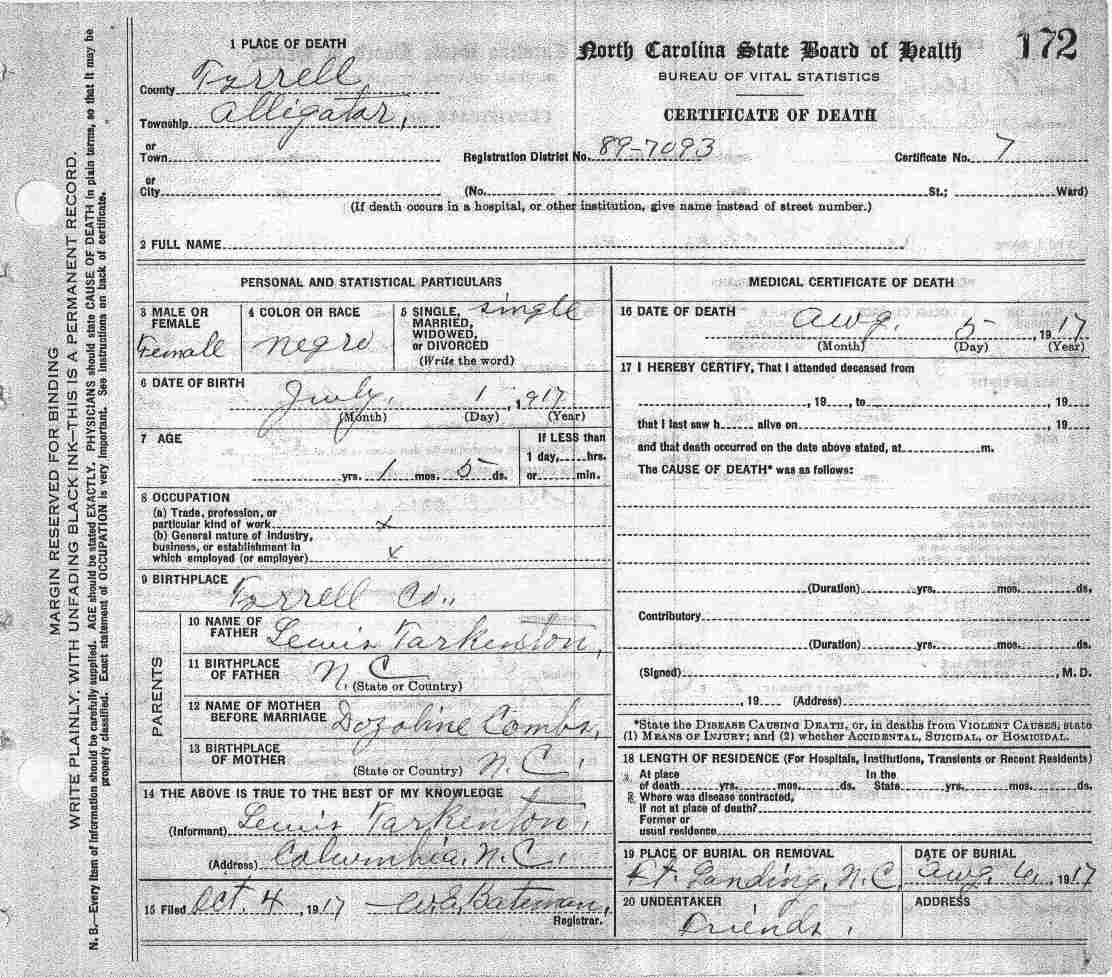 1 PLACE OF DEATH
North Carolina State Board of Health 172
BUREAU OF VITAL STATISTICS
County Tyrrell
Township Alligator,
CERTIFICATE OF DEATH
or
Town
Registration District No. 89-7093 Certificate No. 7
or
City (No. St.; Ward)
(If death occurs in a hospital, or other institution, give name instead of street number.)
2 FULL NAME
PERSONAL AND STATISTICAL PARTICULARS
3 MALE OR FEMALE
Female
4 COLOR OR RACE
negro
5 SINGLE, single
MARRIED,
WIDOWED,
or DIVORCED
(Write the word)
6 DATE OF BIRTH
July, 1, 1917
(Month) (Day) (Year)
7 AGE
yrs. 1 mos. 5 ds.
If LESS than
1 day, hrs.
or min.
8 OCCUPATION
(a) Trade, profession, or
particular kind of work x
(b) General nature of industry,
business, or establishment in
which employed (or employer) x
9 BIRTHPLACE
Tyrrell Co.,
PARENTS
10 NAME OF
FATHER Lewis Tarkenton,
11 BIRTHPLACE
OF FATHER N.C
(State or Country)
12 NAME OF MOTHER
BEFORE MARRIAGE Dozoline Combs,
13 BIRTHPLACE
OF MOTHER
(State or Country) N.C.
14 THE ABOVE IS TRUE TO THE BEST OF MY KNOWLEDGE
(Informant) Lewis Tarkenton,
(Address) Columbia, N.C.
15 Filed Oct. 4, 1917 W.E. Bateman,
Registrar.
MEDICAL CERTIFICATE OF DEATH
16 DATE OF DEATH
Aug. 5, 1917
(Month) (Day) (Year)
17 I HEREBY CERTIFY, That I attended deceased from
, 19 , to , 19
that I last saw h alive on , 19
and that death occurred on the date above stated, at m.
The CAUSE OF DEATH* was as follows:
(Duration) yrs. mos. ds.
Contributory
(Duration) yrs. mos. ds.
(Signed) , M.D.
, 19 (Address)
*State the DISEASE CAUSING DEATH, or, in deaths from VIOLENT CAUSES, state
(1) MEANS OF INJURY; and (2) whether ACCIDENTAL, SUICIDAL, or HOMICIDAL.
18 LENGTH OF RESIDENCE (For Hospitals, Institutions, Transients or Recent Residents)
At place In the
of death yrs. mos. ds. State yrs. mos. ds.
Where was disease contracted,
If not at place of death?
Former or
usual residence
19 PLACE OF BURIAL OR REMOVAL
Ft. Landing, N.C.
DATE OF BURIAL
Aug. 6, 1917
20 UNDERTAKER
Friends.
ADDRESS
MARGIN RESERVED FOR BINDING
WRITE PLAINLY, WITH UNFADING BLACK INK—THIS IS A PERMANENT RECORD.
N. B.—Every item of information should be carefully supplied. AGE should be stated EXACTLY. PHYSICIANS should state CAUSE OF DEATH in plain terms, so that it may be
properly classified. Exact statement of OCCUPATION is very important. See instructions on back of certificate.